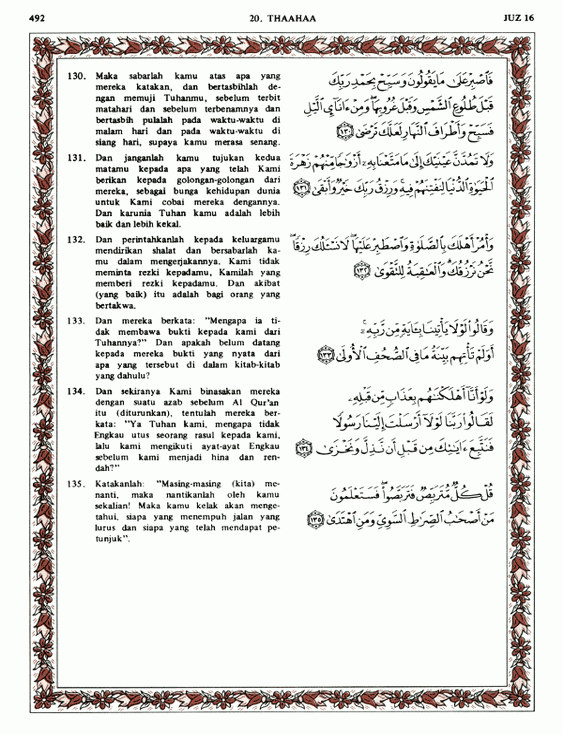 492
20. THAAHAA
JUZ 16
130. Maka sabarlah kamu atas apa yang
mereka katakan, dan bertasbihlah de-
ngan memuji Tuhanmu, sebelum terbit
matahari dan sebelum terbenamnya dan
bertasbih pulalah pada waktu-waktu di
malam hari dan pada waktu-waktu di
siang hari, supaya kamu merasa senang.
فَٱصْبِرْ عَلَىٰ مَا يَقُولُونَ وَسَبِّحْ بِحَمْدِ رَبِّكَ
قَبْلَ طُلُوعِ ٱلشَّمْسِ وَقَبْلَ غُرُوبِهَا ۖ وَمِنْ ءَانَآئِ ٱلَّيْلِ
فَسَبِّحْ وَأَطْرَافَ ٱلنَّهَارِ لَعَلَّكَ تَرْضَىٰ ١٣٠
131. Dan janganlah kamu tujukan kedua
matamu kepada apa yang telah Kami
berikan kepada golongan-golongan dari
mereka, sebagai bunga kehidupan dunia
untuk Kami cobai mereka dengannya.
Dan karunia Tuhan kamu adalah lebih
baik dan lebih kekal.
وَلَا تَمُدَّنَّ عَيْنَيْكَ إِلَىٰ مَا مَتَّعْنَا بِهِۦٓ أَزْوَٰجًا مِّنْهُمْ زَهْرَةَ
ٱلْحَيَوٰةِ ٱلدُّنْيَا لِنَفْتِنَهُمْ فِيهِ ۚ وَرِزْقُ رَبِّكَ خَيْرٌ وَأَبْقَىٰ ١٣١
132. Dan perintahkanlah kepada keluargamu
mendirikan shalat dan bersabarlah ka-
mu dalam mengerjakannya. Kami tidak
meminta rezki kepadamu, Kamilah yang
memberi rezki kepadamu. Dan akibat
(yang baik) itu adalah bagi orang yang
bertakwa.
وَأْمُرْ أَهْلَكَ بِٱلصَّلَوٰةِ وَٱصْطَبِرْ عَلَيْهَا ۖ لَا نَسْـَٔلُكَ رِزْقًا ۖ
نَّحْنُ نَرْزُقُكَ ۗ وَٱلْعَٰقِبَةُ لِلتَّقْوَىٰ ١٣٢
133. Dan mereka berkata: "Mengapa ia ti-
dak membawa bukti kepada kami dari
Tuhannya?" Dan apakah belum datang
kepada mereka bukti yang nyata dari
apa yang tersebut di dalam kitab-kitab
yang dahulu?
وَقَالُوا۟ لَوْلَا يَأْتِينَا بِـَٔايَةٍ مِّن رَّبِّهِۦٓ ۚ
أَوَلَمْ تَأْتِهِم بَيِّنَةُ مَا فِى ٱلصُّحُفِ ٱلْأُولَىٰ ١٣٣
134. Dan sekiranya Kami binasakan mereka
dengan suatu azab sebelum Al Qur'an
itu (diturunkan), tentulah mereka ber-
kata: "Ya Tuhan kami, mengapa tidak
Engkau utus seorang rasul kepada kami,
lalu kami mengikuti ayat-ayat Engkau
sebelum kami menjadi hina dan ren-
dah?"
وَلَوْ أَنَّآ أَهْلَكْنَٰهُم بِعَذَابٍ مِّن قَبْلِهِۦ
لَقَالُوا۟ رَبَّنَا لَوْلَآ أَرْسَلْتَ إِلَيْنَا رَسُولًا
فَنَتَّبِعَ ءَايَٰتِكَ مِن قَبْلِ أَن نَّذِلَّ وَنَخْزَىٰ ١٣٤
135. Katakanlah: "Masing-masing (kita) me-
nanti, maka nantikanlah oleh kamu
sekalian! Maka kamu kelak akan menge-
tahui, siapa yang menempuh jalan yang
lurus dan siapa yang telah mendapat pe-
tunjuk".
قُلْ كُلٌّ مُّتَرَبِّصٌ فَتَرَبَّصُوا۟ ۖ فَسَتَعْلَمُونَ
مَنْ أَصْحَٰبُ ٱلصِّرَٰطِ ٱلسَّوِىِّ وَمَنِ ٱهْتَدَىٰ ١٣٥